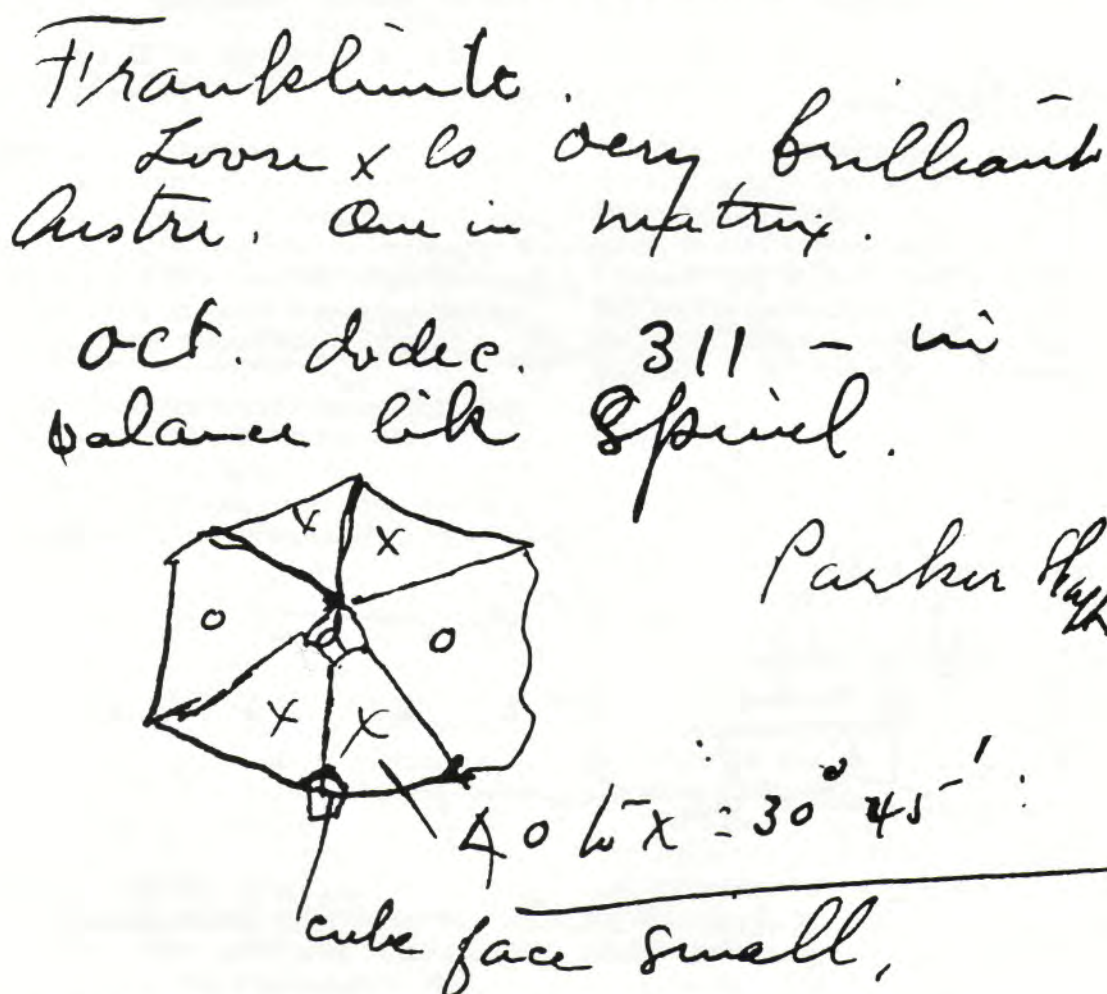 Franklinite.
Loose xls very brilliant
lustre. One in matrix.
oct. dodec. 311 - in
balance like Spinel.
x x
o d o
x x
Parker Shaft
∠ o to x = 30° 45'
cube face small,